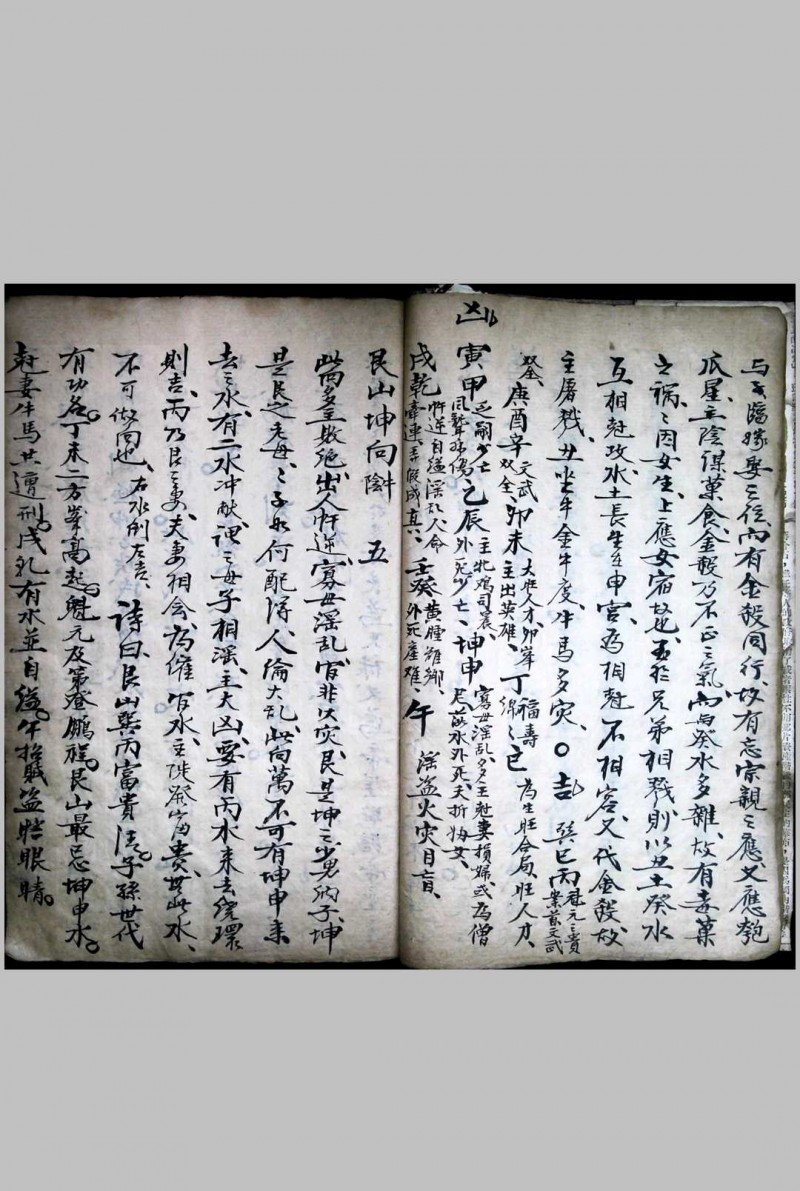 与子臨嫁娶之位、而有金殺同行、故有忘宗親之應、又應匏
瓜星、主陰謀葉食、金殺乃不正之氣、而丙癸水多雜、故有毒菓
之禍、禍因女生、上應女宿故也、於兄弟相戮、則以丑土癸水
互相尅攻、水土長生在申宮、為相尅不相容、又代金殺故
主屠戮、丑坐牛金牛度、牛馬多灾、〇吉 巽巳丙 魁元之貴 文武
双全、庚酉辛 文武双全、卯未 大旺人才、卯峯主出英雄、丁 福壽綿綿、巳 為生旺合局、旺人才、
凶
寅甲 乏嗣少亡 風聲 乙辰 主牝鸡司晨、外死少亡、坤申 寡母淫乱、多主尅妻損婦、或為僧尼 水外死、夭折 女、
戌乾 忤逆自縊淫乱人命牽連、弄假成真、壬癸 黄腫 外死產难、午 淫盗火灾目盲、
艮山坤向 五
當多主敗绝、出人忤逆、寡母淫乱、官非火灾、艮是坤之少男的子、坤
是艮之老母、母子如何配得、人倫大乱、此向萬不可有坤申来
去之水、有二水冲献、謂之母子相淫、主大凶、要有丙水来去绕環
則吉、丙乃艮之妻、夫妻相会為催官水、主陡發富贵、無此水、
不可做向也、右水倒左吉、詩曰、艮山巽丙富貴清、子孫世代
有功名、丁未二方峯高起、魁元及第登鵬程、艮山最忌坤申水、
尅妻牛馬共遭刑、戌乳有水並自縊、午招賊盗瞎眼睛、